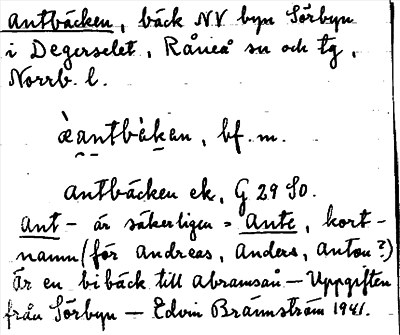 Antbäcken, bäck NV byn Sörbyn
i Degerselet, Råneå sn och tg,
Norrb. l.
àantbèkan, bf. m.
Antbäcken ek, G 29 SO.
Ant- är säkerligen = Ante, kort-
namn (för Andreas, Anders, Anton?)
Är en bibäck till Abramsån - Uppgiften
från Sörbyn - Edvin Brännström 1941.